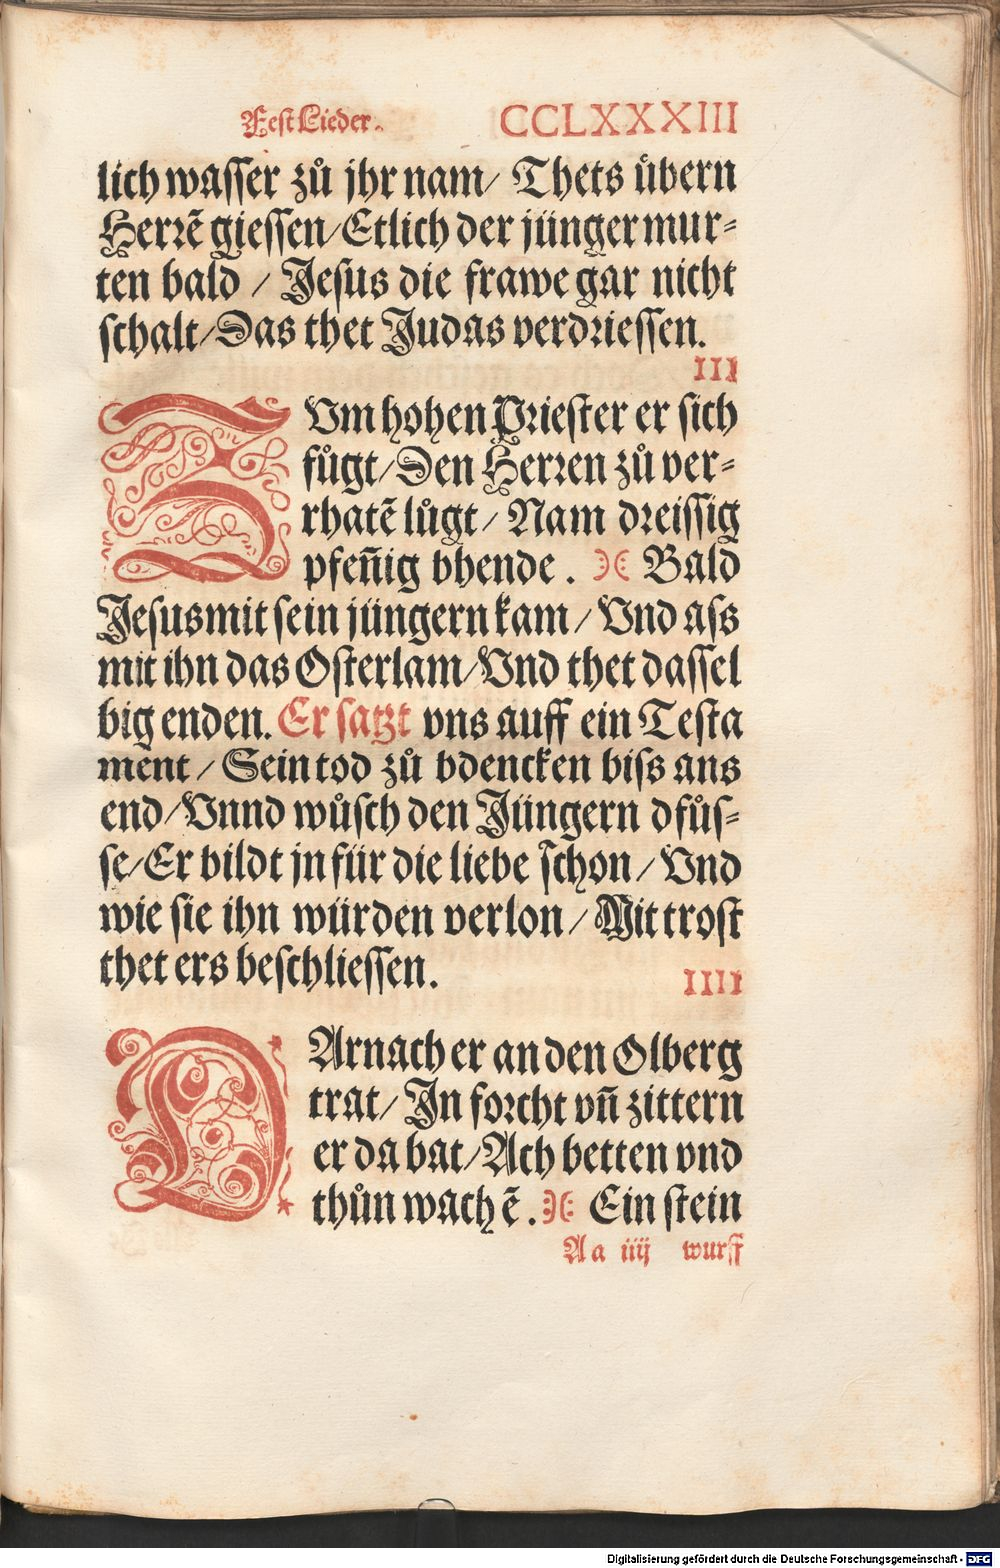 Fest Lieder. CCLXXXIII
lich wasser zů jhr nam/ Thets übern
Herrẽ giessen/ Etlich der jünger mur⸗
ten bald / Jesus die frawe gar nicht
schalt/ Das thet Judas verdriessen.
III
ZUm hohen Priester er sich
fůgt/ Den Herren zů ver⸗
rhatẽ lůgt/ Nam dreissig
pfeñig bhende . Bald
Jesus mit sein jüngern kam/ Vnd ass
mit ihn das Osterlam/ Vnd thet dassel
big enden. Er satzt vns auff ein Testa
ment / Sein tod zů bdencken biss ans
end/ Vnnd wůsch den Jüngern dfůs⸗
se/ Er bildt jn für die liebe schon/ Vnd
wie sie ihn würden verlon/ Mit trost
thet ers beschliessen.
IIII
DArnach er an den Olberg
trat/ In forcht vñ zittern
er da bat/ Ach betten vnd
thůn wachẽ . Ein stein
Aa iiij wurff
Digitalisierung gefördert durch die Deutsche Forschungsgemeinschaft - DFG